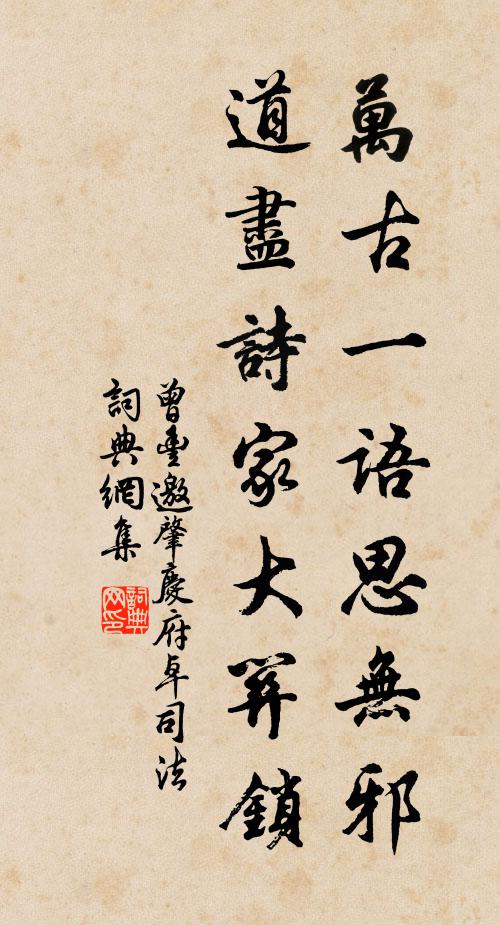 萬古一語思無邪
道盡詩家大關鎖
曾豐邀肇慶府卓司法
詞典網集
詞典
网印